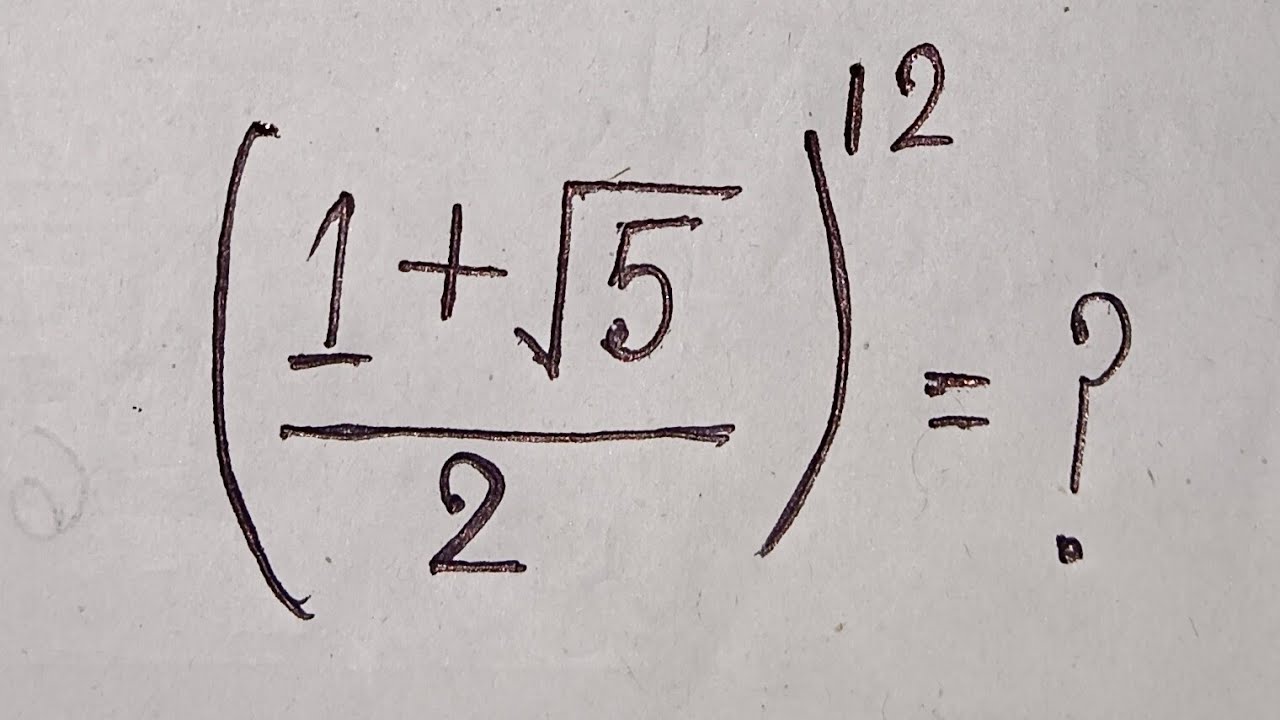 ((1+√5)/2)^12 = ?